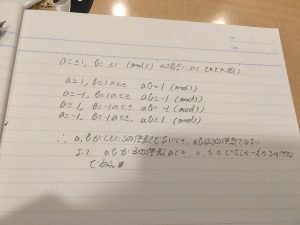 a≡±1, b≡±1 (mod3) の場合において それぞれ
a≡1, b≡1のとき ab≡1 (mod3)
a≡-1, b≡1のとき ab≡-1 (mod3)
a≡1, b≡-1のとき ab≡-1 (mod3)
a≡-1, b≡-1のとき, ab≡1 (mod3)
∴ a, bがともに3の倍数でないとき, abは3の倍数でない
よって abが3の倍数のとき, a, b 3の倍数
である。